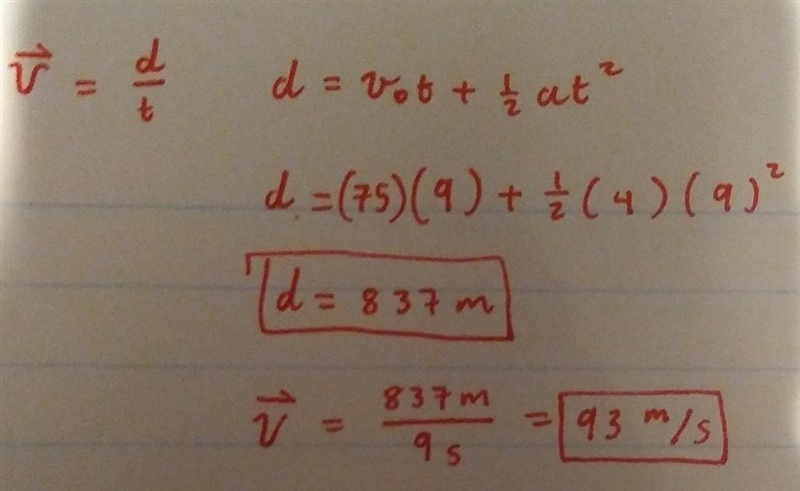 v⃗ = d/t    d = v₀t + ½ at²
d = (75)(9) + ½ (4)(9)²
d = 837 m
v⃗ = 837m/9s = 93 m/s